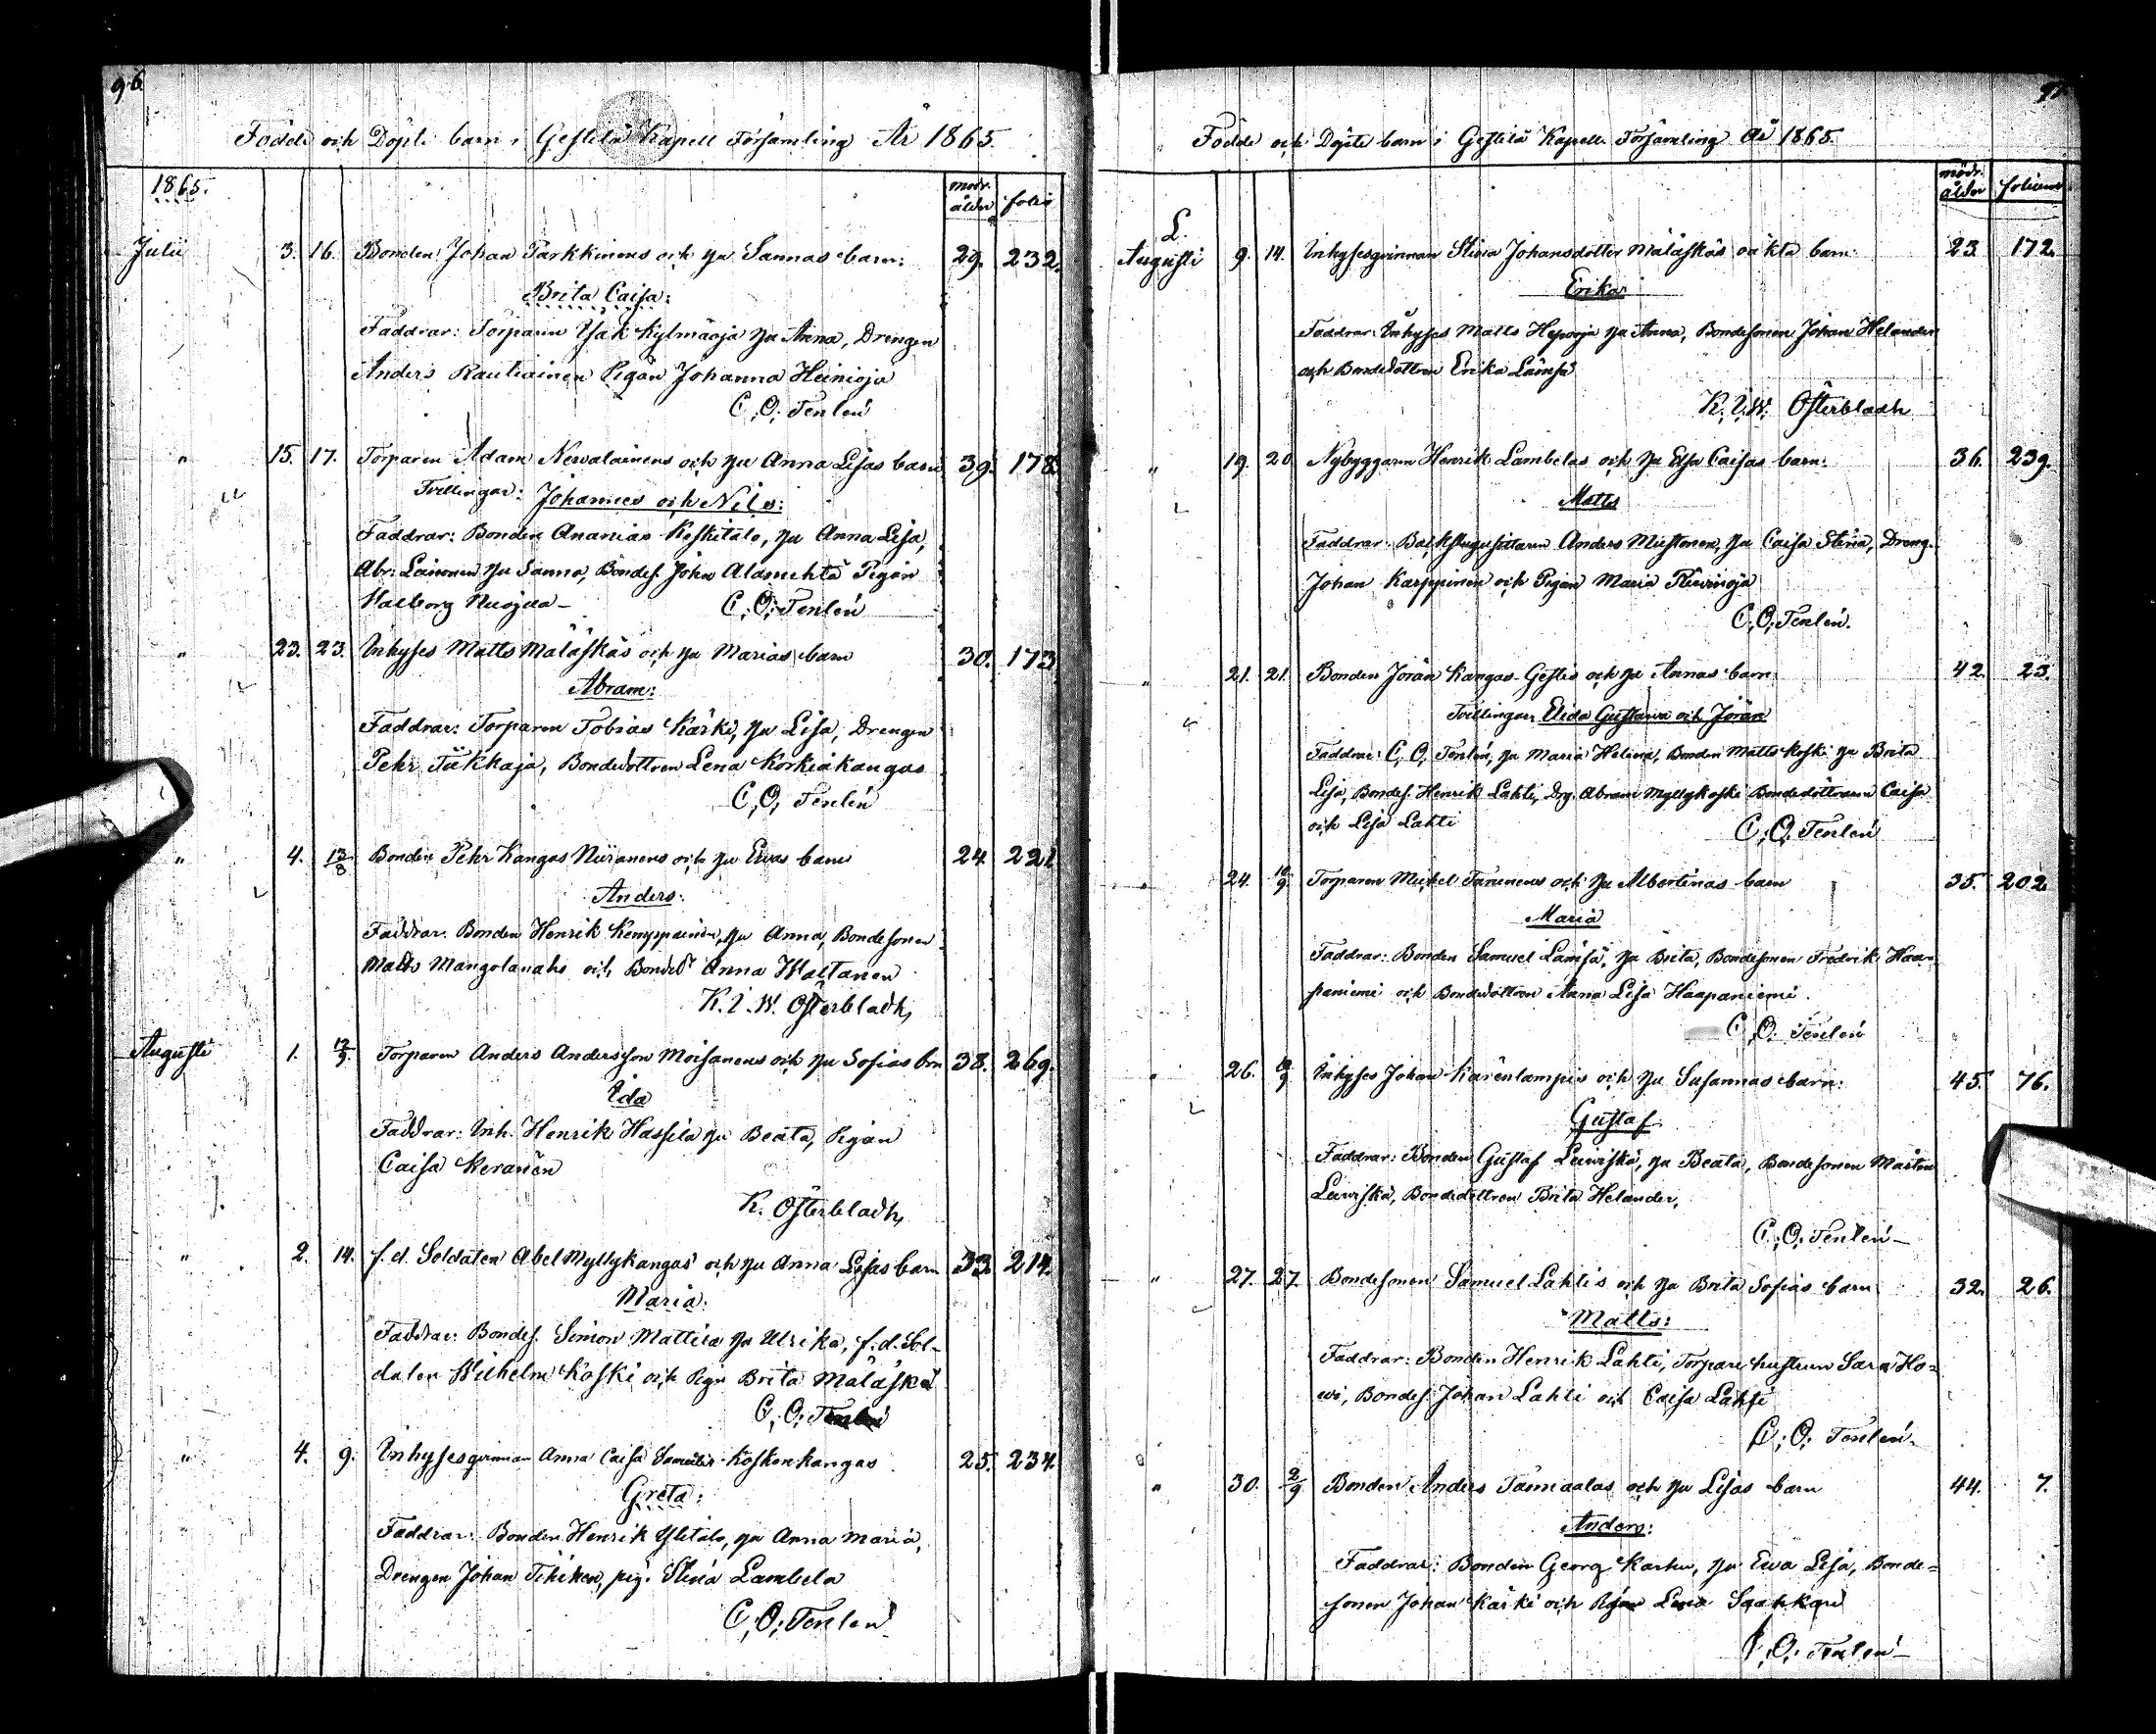 96
Födde och Döpte barn i Gestilä Kapell Församling År 1865.
1865.
modr. ålder
folio
Julii 3. 16. Bonden Johan Parkkinens och hu Sannas barn: 29. 232.
Brita Caisa:
Faddrar: Torparen Isak Kylmäoja hu Anna, Drengen
Anders Rautiainen Pigan Johanna Heinioja
C. O. Tenlén
" 15. 17. Torparen Adam Nevalainens och hu Anna Lisas barn 39. 178.
Tvillingar: Johannes och Nils:
Faddrar: Bonden Ananias Koskitalo, hu Anna Lisa,
Abr: Leinonen hu Sanna, Bondes. John Alamehtä Pigan
Walborg Nuojua - C. O. Tenlén
" 23. 23. Inhyses Matts Mäläskäs och hu Marias barn 30. 173
Abram:
Faddrar: Torparen Tobias Kärki, hu Lisa, Drengen
Pehr Tükkaja, Bondedottren Lena Korkiakangas
C. O. Tenlén
" 4. 13/8 Bonden Pehr Kangas Niiranens och hu Evas barn 24 221
Anders:
Faddrar. Bonden Henrik Kemppainen, hu Anna, Bondesonen
Matts Mangolanaho och Bondedr Anna Waltanen
K. I. W. Österbladh,
Augusti 1. 12/9. Torparen Anders Andersson Moisanens och hu Sofias brn 38. 269.
Ida
Faddrar: Inh. Henrik Hassila hu Beata, Pigan
Caisa Keränen
K. Österbladh,
" 2. 14. f. d. Soldaten Abel Myllykangas och hu Anna Lisas barn 33. 214.
Maria:
Faddrar: Bondes. Simon Mattila hu Ulrika, f. d. Sol-
daten Wilhelm Koski och Pign Brita Mäläskä
C. O. Tenlén
" 4. 9. Inhysesqvinnan Anna Caisa Samuelsdr Koskenkangas 25. 234.
Greta:
Faddrar: Bonden Henrik Ylitalo, hu Anna Maria,
Drengen Johan Tihinen, pig. Stina Lambela
C. O. Tenlén
97
Födde och Döpte barn i Gestilä Kapell Församling År 1865.
modr. ålder
folium
L.
Augusti 9. 14. Inhysesqvinnan Stina Johansdotter Mäläskäs oäkta barn: 23 172.
Erika
Faddrar: Inhyses Matts Hepooja hu Anna, Bondesonen Johan Helander
och Bondedottren Erika Lämsä
K. I. W. Österbladh
" 19. 20. Nybyggaren Henrik Lambelas och hu Elsa Caisas barn: 36. 239.
Matts
Faddrar: Backstugusittaren Anders Mustonen, hu Caisa Stina, Dreng.
Johan Karppinen och Pigan Maria
C. O. Tenlén.
" 21. 21. Bonden Jöran Kangas-Gestis och hu Annas barn 42. 23.
Tvillingar Elida Gustava och Jöran
Faddrar: C. O. Tenlén, hu Maria Helena, Bonden Matts Koski hu Brita
Lisa, Bondes. Henrik Lahti, Drg. Abram Myllykoski Bondedöttrarna Caisa
och Lisa Lahti C. O. Tenlén
" 24. 10/9. Torparen Mickel Tarunens och hu Albertinas barn 35. 202
Maria
Faddrar: Bonden Samuel Lämsä, hu Brita, Bondesonen Fredrik Haa-
paniemi och Bondedottren Anna Lisa Haapaniemi.
C. O. Tenlén
" 26. 10/9 Inhyses Johan Kärenlampis och hu Susannas barn: 45. 76.
Gustaf
Faddrar: Bonden Gustaf Leiviskä, hu Beata, Bondesonen Mårten
Leiviskä, Bondedottren Brita Helander.
C. O. Tenlén -
" 27. 27. Bondesonen Samuel Lahtis och hu Brita Sofias barn 32. 26.
Matts:
Faddrar: Bonden Henrik Lahti, Torpare hustrun Sara Ho-
wi, Bondes. Johan Lahti och Caisa Lahti
C. O. Tenlén.
" 30. 2/9 Bonden Anders Tarmaalas och hu Lisas barn 44. 7.
Anders:
Faddrar: Bonden Georg Karhu, hu Ewa Lisa, Bonde-
sonen Johan Kärki och Pigan Lena Saakkari
C. O. Tenlén -